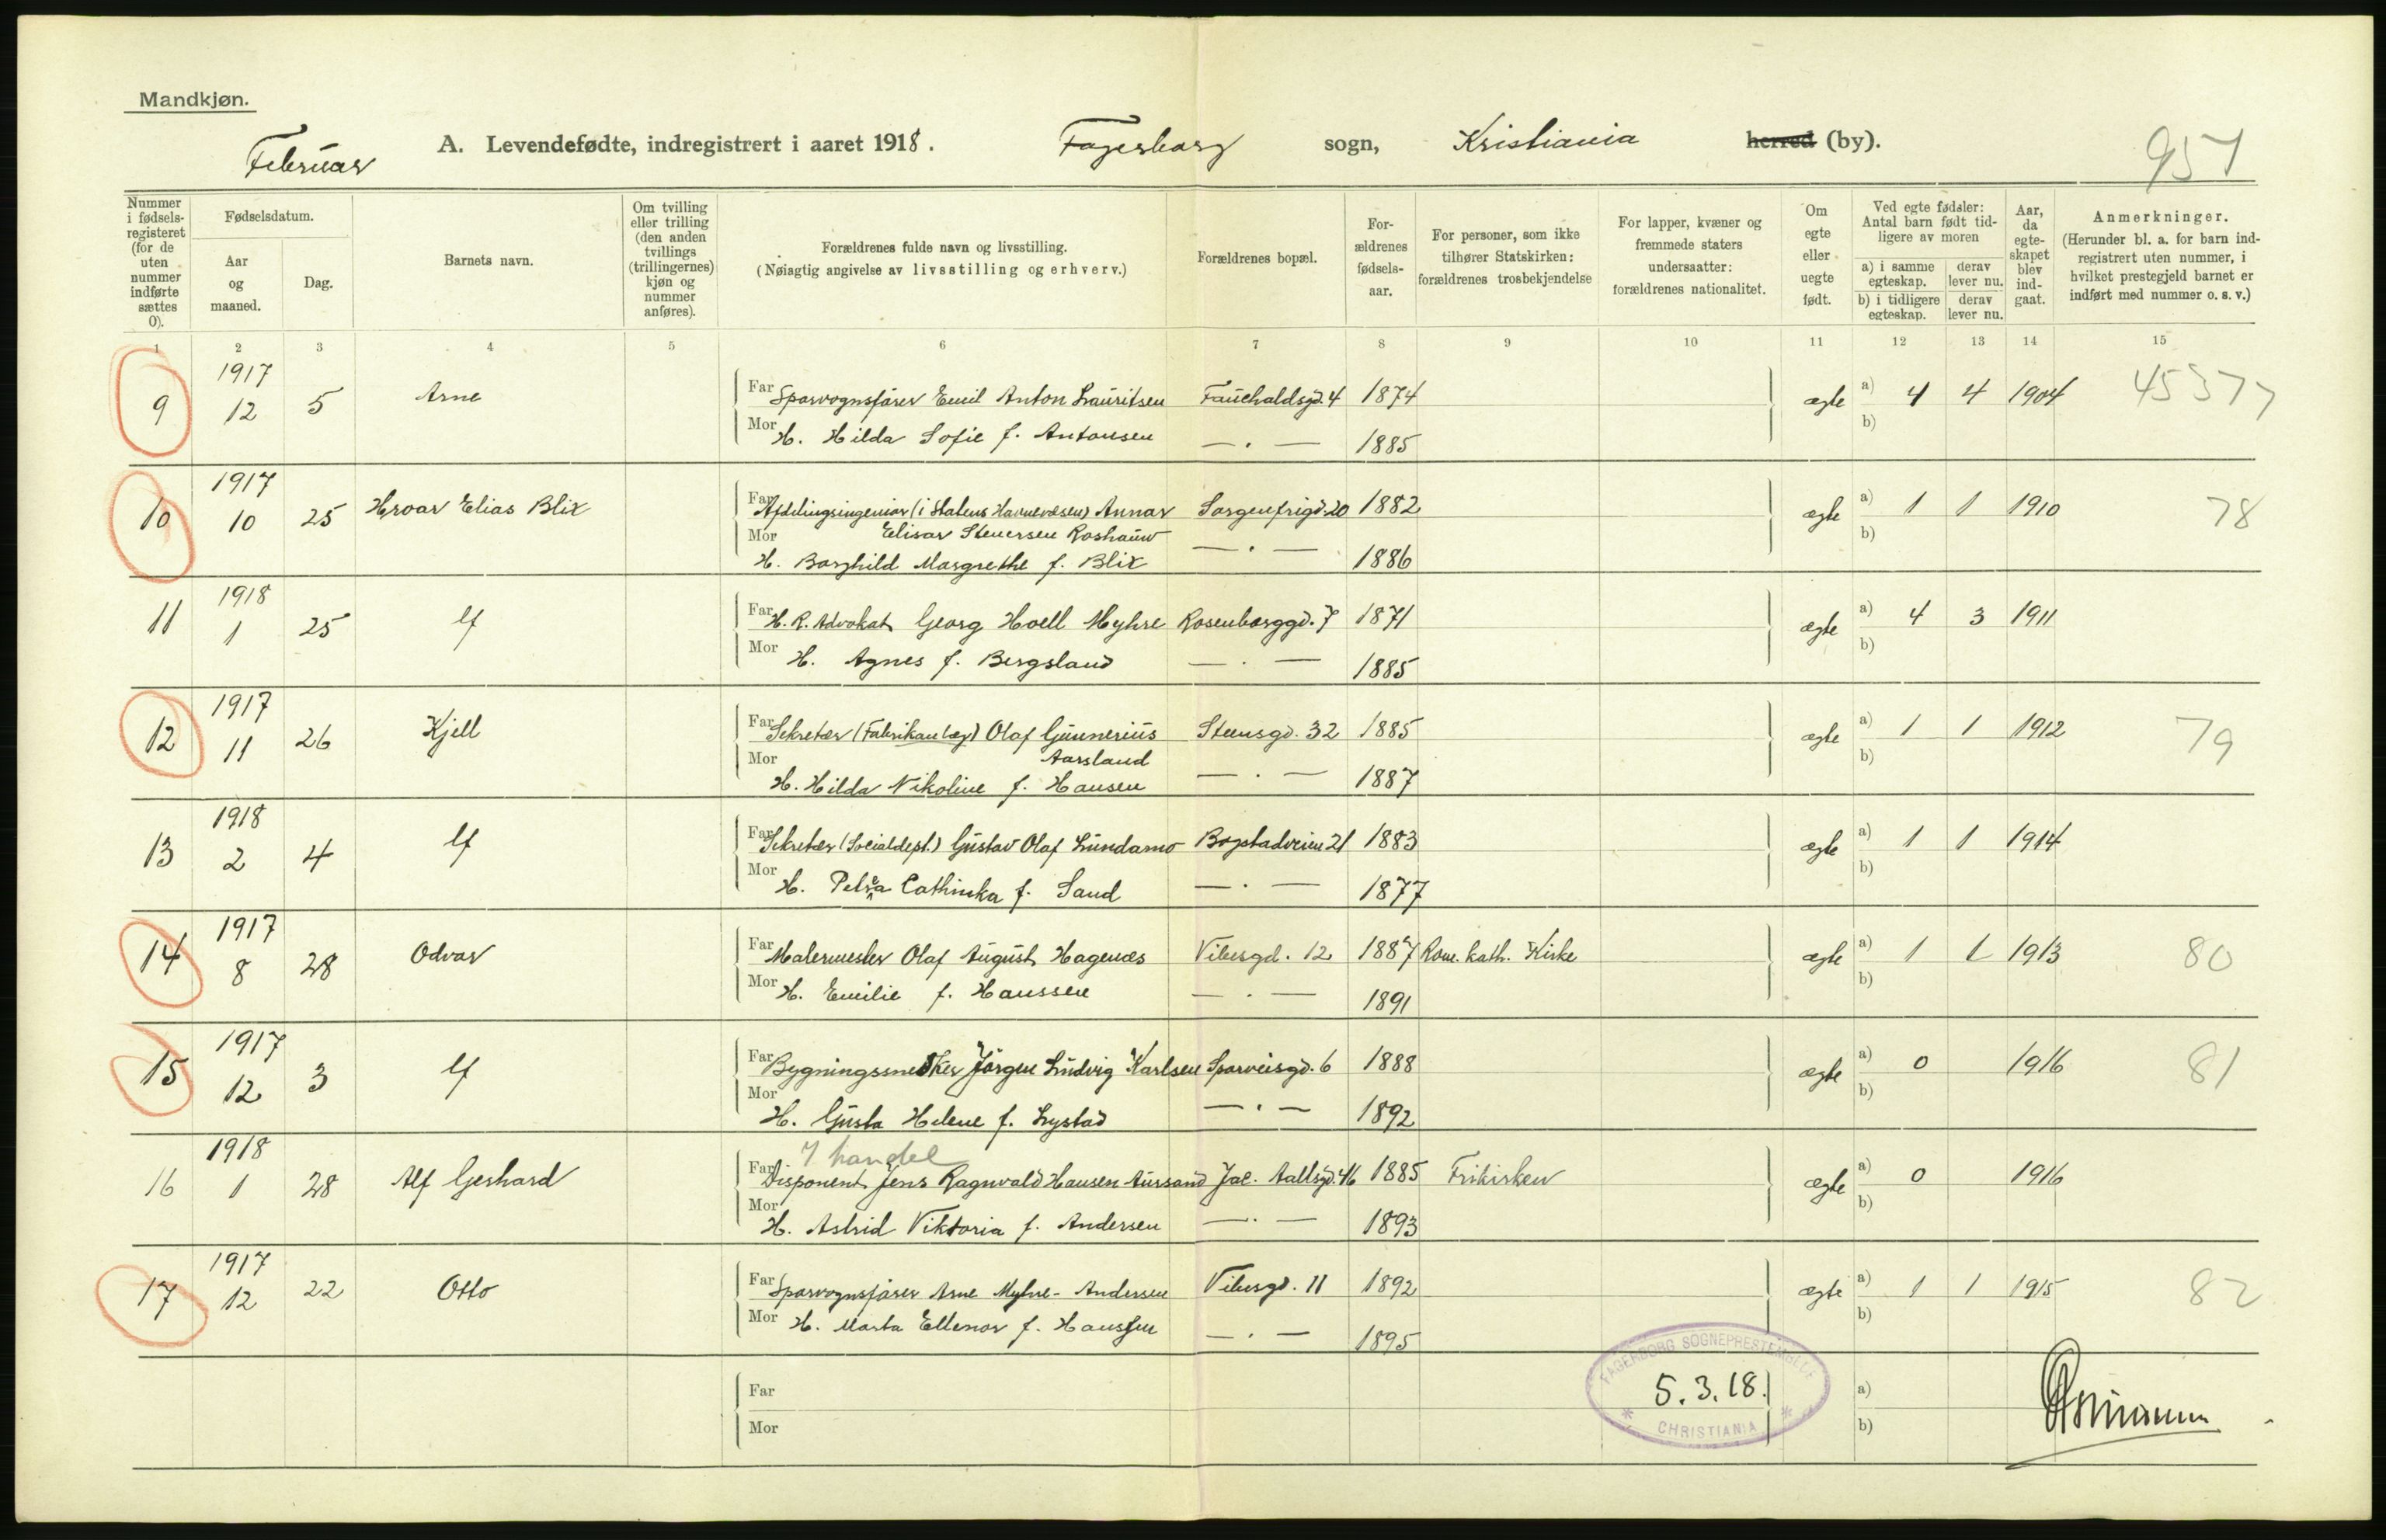 Mandkjøn.
Februar A. Levendefødte, indregistrert i aaret 1918. Fagerborg sogn, Kristiania herred (by). 951
Nummer i fødsels-registeret (for de uten nummer indførte sættes 0). Fødselsdatum. Aar og maaned. Dag. Barnets navn. Om tvilling eller trilling (den anden tvillings (trillingernes) kjøn og nummer anføres). Forældrenes fulde navn og livsstilling. (Nøiagtig angivelse av livsstilling og erhverv.) Forældrenes bopæl. For-ældrenes fødsels-aar. For personer, som ikke tilhører Statskirken: forældrenes trosbekjendelse For lapper, kvæner og fremmede staters undersaatter: forældrenes nationalitet. Om egte eller uegte født. Ved egte fødsler: Antal barn født tid-ligere av moren a) i samme egteskap. derav lever nu. b) i tidligere egteskap. derav lever nu. Aar, da egte-skapet blev ind-gaat. Anmerkninger. (Herunder bl. a. for barn ind-registrert uten nummer, i hvilket prestegjeld barnet er indført med nummer o. s. v.)
1 2 3 4 5 6 7 8 9 10 11 12 13 14 15
9 1917 12 5 Arne Far Sporvognsfører Emil Anton Lauritsen Fauchaldsgd. 4 1874 ægte a) 4 4 1904 45377
Mor H. Hilda Sofie f. Antonsen — . — 1885 b)
10 1917 10 25 Hroar Elias Blix Far Afdelingsingeniør (i Statens Havnevæsen) Annar Sorgenfrigd. 20 1882 ægte a) 1 1 1910 78
Elisar Stenersen Roshauw
Mor H. Borghild Margrethe f. Blix — . — 1886 b)
11 1918 1 25 Uf Far H. R. Advokat Georg Hoell Myhre Rosenborggd. 7 1871 ægte a) 4 3 1911
Mor H. Agnes f. Bergsland — . — 1885 b)
12 1917 11 26 Kjell Far Sekretær (Fabrikanlæg) Olaf Gunnerius Stensgd. 32 1885 ægte a) 1 1 1912 79
Aarsland
Mor H. Hilda Nikoline f. Hansen — . — 1887 b)
13 1918 2 4 Uf Far Sekretær (Socialdept.) Gustav Olaf Lundamo Bogstadveien 21 1883 ægte a) 1 1 1914
Mor H. Petra Cathinka f. Sand — . — 1877 b)
14 1917 8 28 Odvar Far Malermester Olaf August Hagenæs Vibesgd. 12 1887 Rom. kath. Kirke ægte a) 1 1 1913 80
Mor H. Emilie f. Hanssen — . — 1891 b)
15 1917 12 3 Uf Far Bygningssnedker Jørgen Ludvig Karlsen Sporveisgd. 6 1888 ægte a) 0 1916 81
Mor H. Gusta Helene f. Lystad — . — 1892 b)
I handel
16 1918 1 28 Alf Gerhard Far Disponent Jens Ragnvald Hansen Aursand Jac. Aallsgd. 46 1885 Frikirken ægte a) 0 1916
Mor H. Astrid Viktoria f. Andersen — . — 1893 b)
17 1917 12 22 Otto Far Sporvognsfører Arne Myhre-Andersen Vibesgd. 11 1892 ægte a) 1 1 1915 82
Mor H. Marta Ellenor f. Hanssen — . — 1895 b)
Far a)
Mor b)
FAGERBORG SOGNEPRESTEMBEDE
5.3.18.
* CHRISTIANIA *